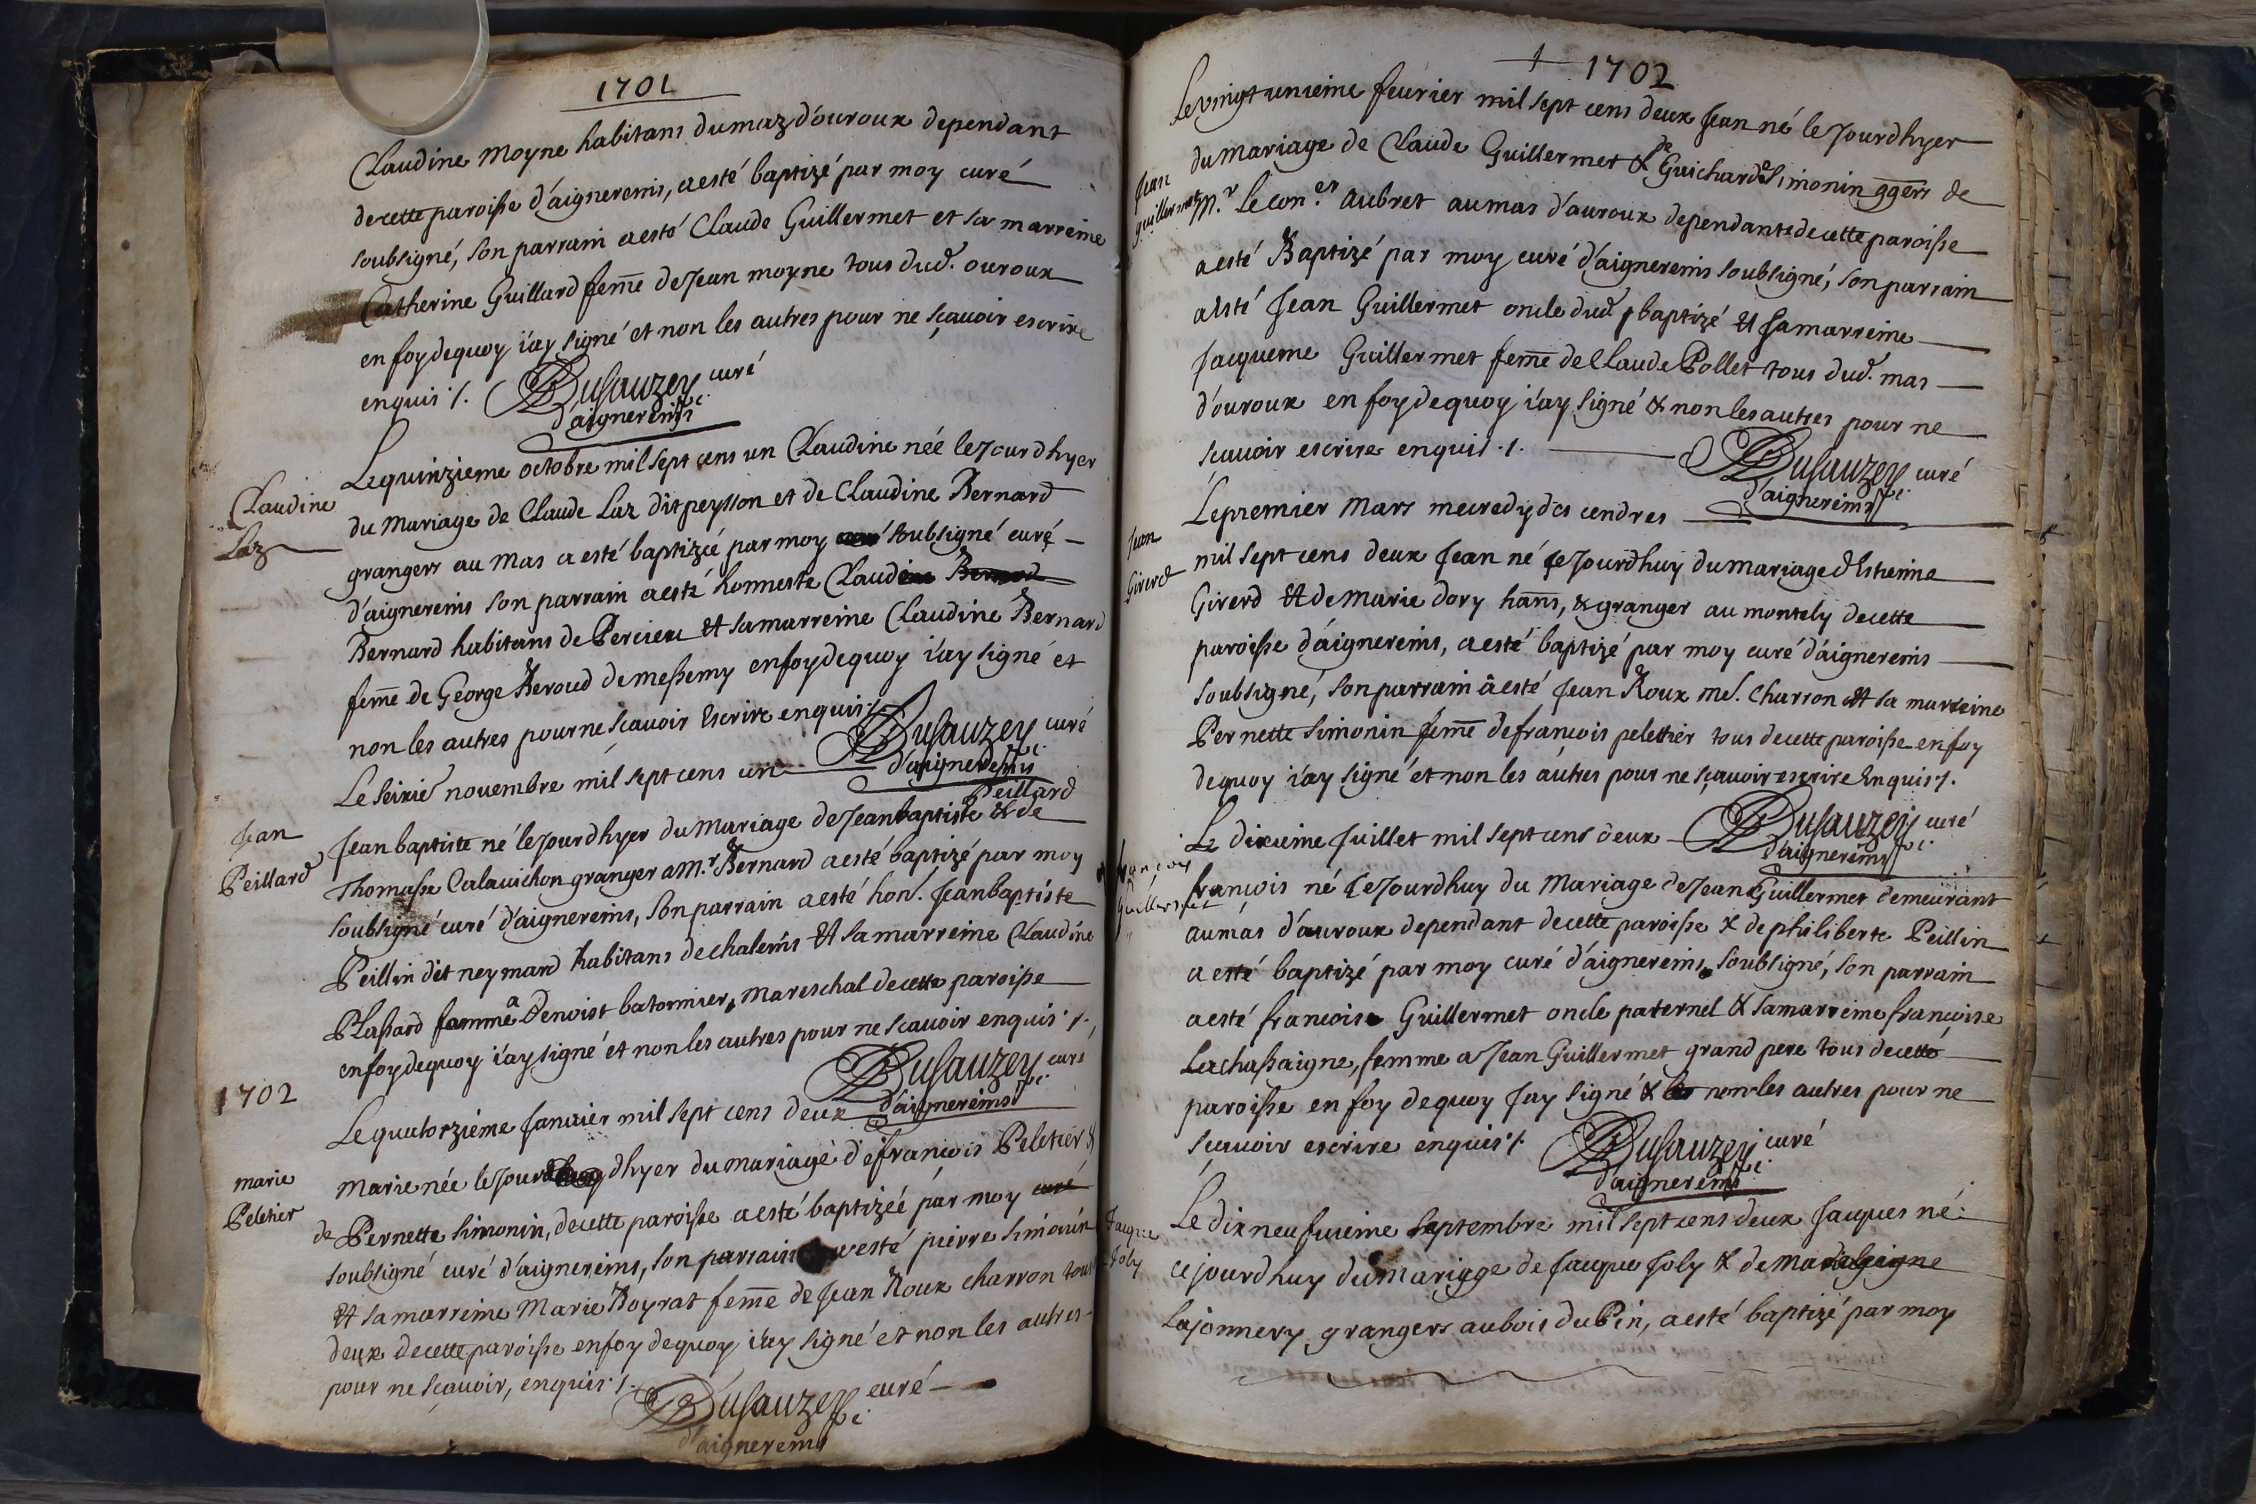 1701
Claudine Moyne habitans du maz d'ouroux dependant
de cette paroisse d'aignereins, a esté baptizé par moy curé
soubsigné, son parrain a esté Claude Guillermet et sa marreine
Catherine Guillard fem̄e de Jean moyne tous dud. ouroux
en foy de quoy i'ay signé et non les autres pour ne sçavoir escrire
enquis ./. Dusauzey curé
d'aignereins
Claudine
Laz
Le quinzieme octobre mil sept cens un Claudine née le Jourd hyer
du Mariage de Claude Laz dit peysson et de Claudine Bernard
grangers au Mas a esté baptizée par moy soubsigné curé
d'aignereins son parrain a esté honneste Claude Bernard
Bernard habitans de Percieu et sa marreine Claudine Bernard
fem̄e de George Beroud de messemy en foy de quoy i'ay signé et
non les autres pour ne sçavoir escrire enquis ./. Dusauzey curé
d'aignereins
Jean
Peillard
Le seizie novembre mil sept cens un
Peillard
Jean baptiste né le Jourd hyer du Mariage de Jean baptiste & de
Thomasse Calavichon granger a Mr. Bernard a esté baptizé par moy
soubsigné curé d'aignereins, son parrain a esté hon. Jean baptiste
Peillin dit neymard habitans de chaleins et sa marreine Claudine
Plassard femme a Benoist batonnier, mareschal de cette paroisse
en foy de quoy i'ay signé et non les autres pour ne scavoir enquis ./.
Dusauzey curé
d'aignereins
1702
marie
Peletier
Le quatorzieme Janvier mil sept cens deux
Marie née le Jourd hyer du mariage de françois Peletier &
de Pernette Simonin, de cette paroisse a esté baptizéé par moy curé
soubsigné curé d'aignereins, son parrain a esté pierre Simonin
et sa marreine Marie Boyrat fem̄e de Jean Roux charron tous
deux de cette paroisse en foy de quoy i'ay signé et non les autres
pour ne sçavoir, enquis ./.
Dusauzey curé
d'aignereins
1702
Jean
guillermet
Le vingt unieme feurier mil sept cens deux Jean né le Jourd hyer
du Mariage de Claude Guillermet & de Guicharde Simonin ggers de
Mr. Le con.er Aubret au mas d'ouroux dependant de cette paroisse
a esté Baptizé par moy curé d'aignereins soubsigné, son parrain
a esté Jean Guillermet oncle dud. baptizé et sa marreine
Jacqueme Guillermet fem̄e de Claude Pollet tous dud. mas
d'ouroux en foy de quoy i'ay signé & non les autres pour ne
scavoir escrire enquis ./.
Dusauzey curé
d'aignereins
Jean
Girerd
Le premier Mars mecredy des cendres
mil sept cens deux Jean né ce Jourdhuy du mariage d'Estienne
Girerd et de Marie dory han̄s, & granger au montely de cette
paroisse d'aignereins, a esté baptizé par moy curé d'aignereins
soubsigné, son parrain a esté Jean Roux me. charron et sa marreine
Pernette Simonin fem̄e de francois peletier tous de cette paroisse en foy
de quoy i'ay signé et non les autres pour ne sçavoir escrire enquis ./.
Dusauzey curé
d'aignereins
françois
Guillermet
Le dixieme Juillet mil sept cens deux
françois né ce Jourdhuy du Mariage de Jean Guillermet demeurant
au mas d'ouroux dependant de cette paroisse & de philiberte Peillin
a esté baptizé par moy curé d'aignereins soubsigné, son parrain
a esté francois Guillermet oncle paternel & sa marreine françoise
Lachassaigne, femme a Jean Guillermet grand pere tous de cette
paroisse en foy de quoy Jay signé & non les autres pour ne
sçavoir escrire enquis ./. Dusauzey curé
d'aignereins
Jacque
Joly
Le dix neufvieme septembre mil sept cens deux Jacques né
ce jourdhuy du Mariage de Jacque Joly & de
Lajonnery grangers au bois du Pin, a esté baptizé par moy